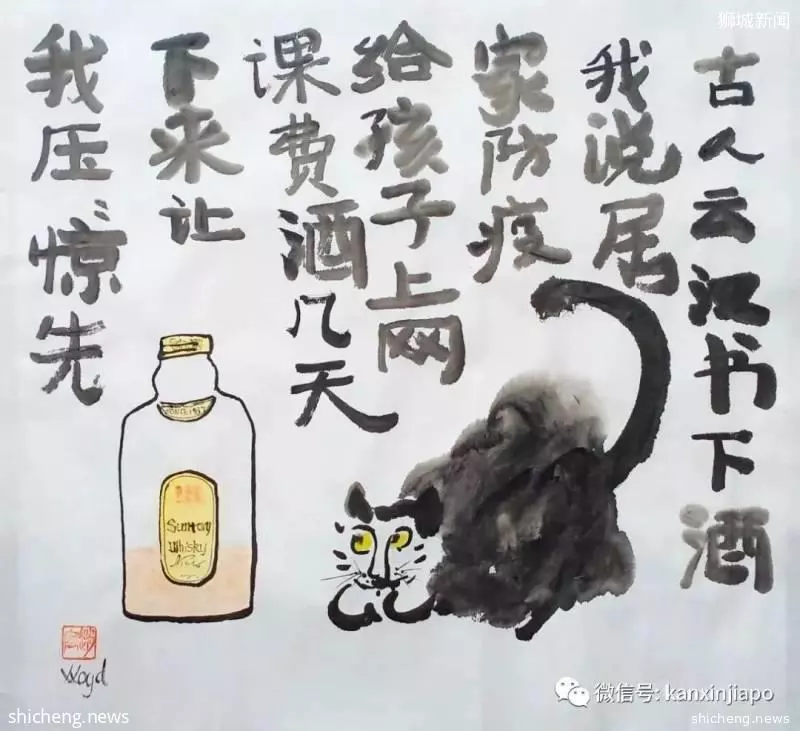 狮城新闻
古人云汉书下酒
我说居
家防疫
给孩子上网
课费酒几天
下来让
我压惊先
Suntory
Whisky
Woyd
微信号: kanxinjiapo
shicheng.news
shicheng.news